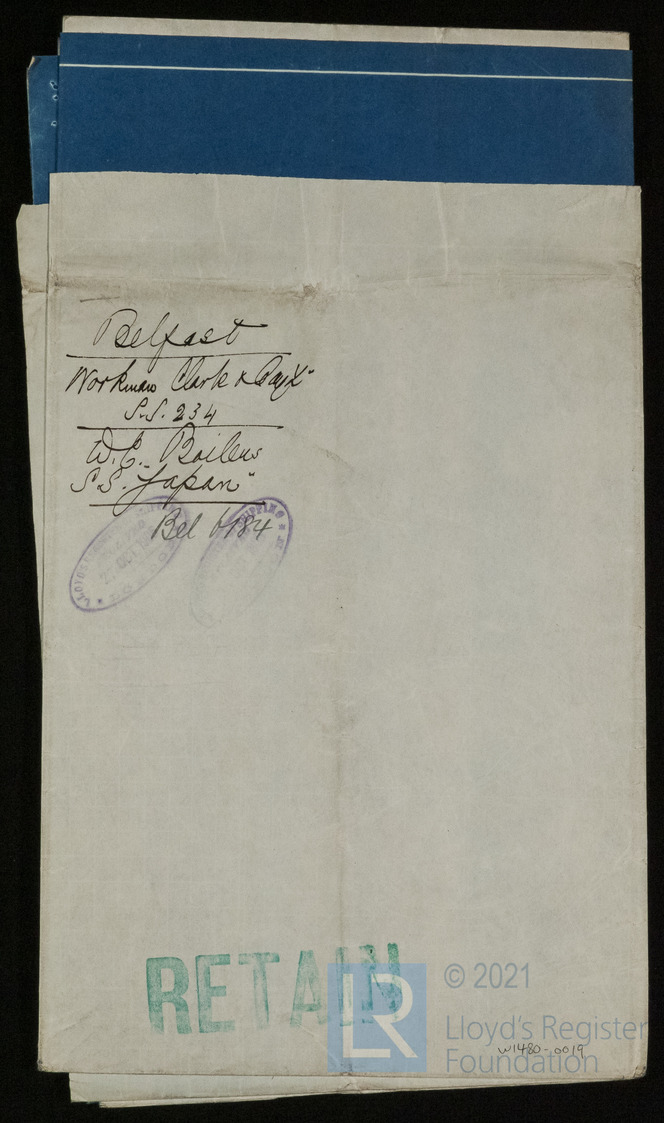 Belfast
Workman Clark & Coy Ld
S.S. 234
W.C. Boilers
S.S. "Japan"
Bel 6184
RETAIN
LR
© 2021
Lloyd's Register
Foundation
W1480-0019